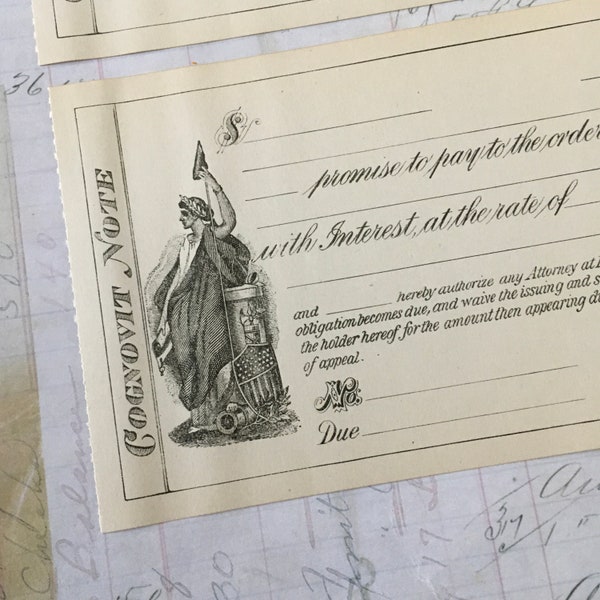 COGNOVIT NOTE
$
promise to pay to the order
with Interest, at the rate of
and hereby authorize any Attorney at
obligation becomes due, and waive the issuing and
the holder hereof for the amount then appearing
of appeal.
No.
Due
36
Balance
317